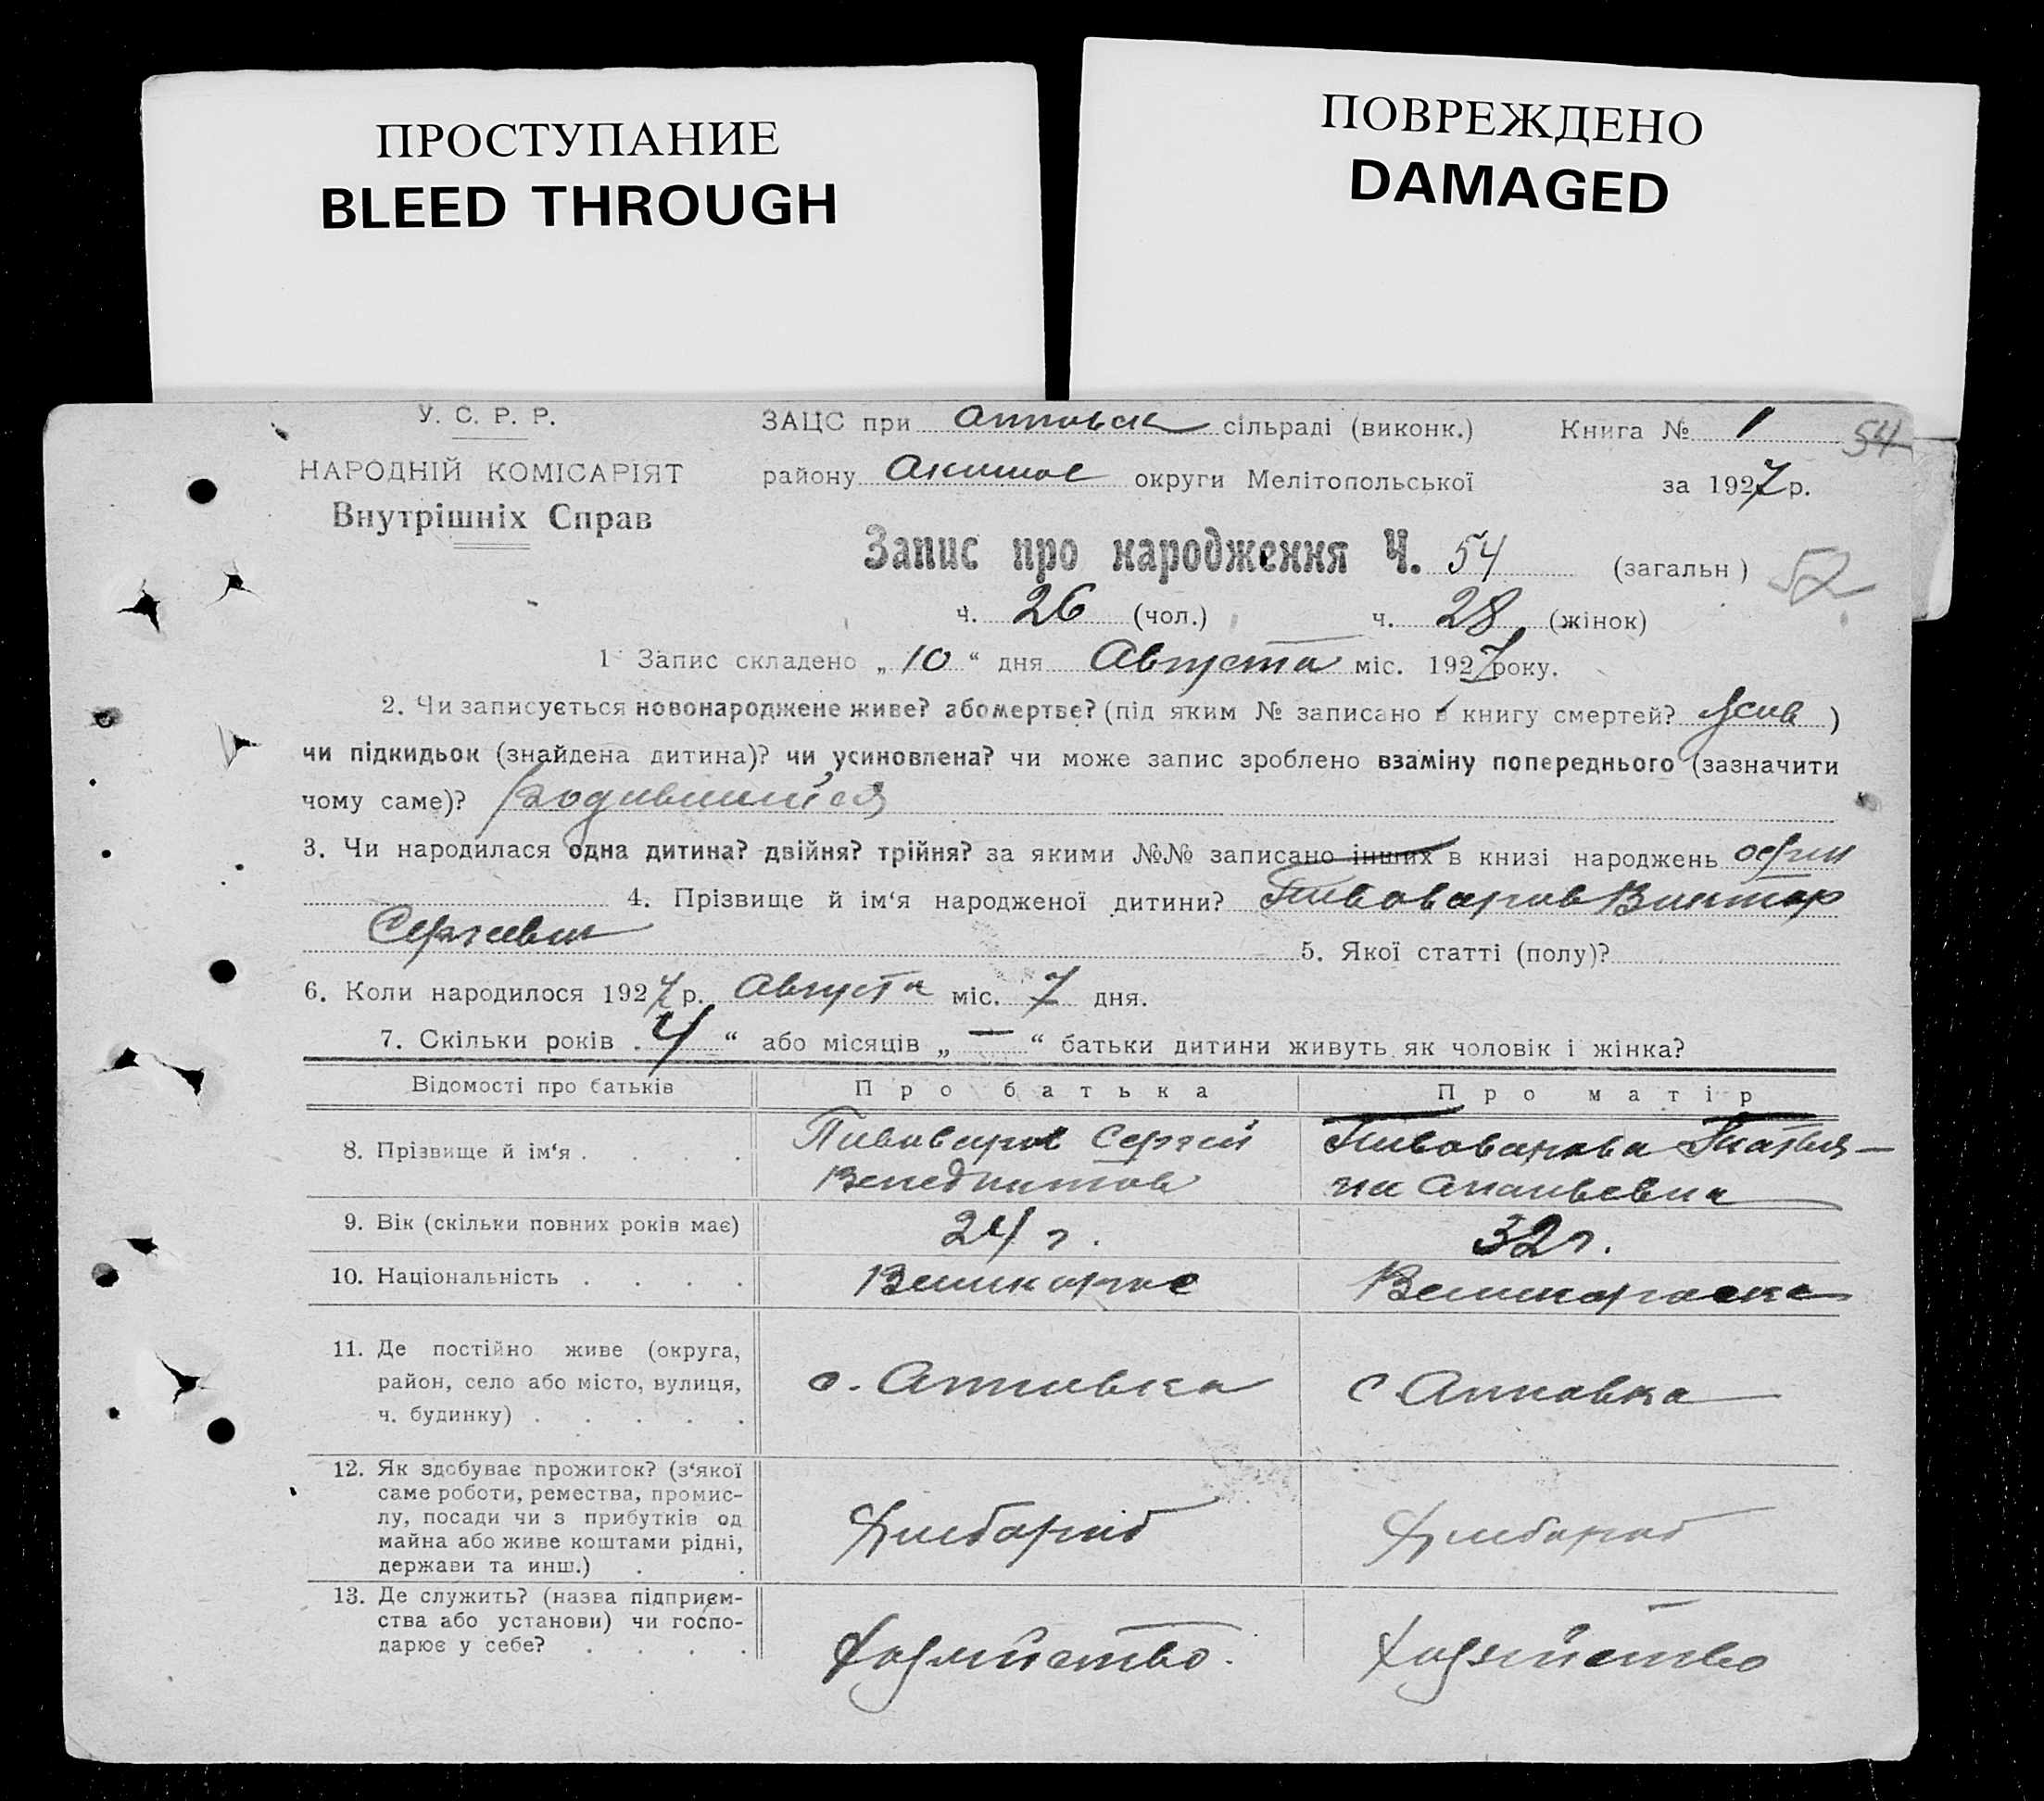 ПРОСТУПАНИЕ
BLEED THROUGH
ПОВРЕЖДЕНО
DAMAGED
У. С. Р. Р.
НАРОДНІЙ КОМІСАРІЯТ
Внутрішніх Справ
ЗАЦС при сільраді (виконк.) Книга № 1 54
району Акимов округи Мелітопольської за 1927 р.
Запис про народження Ч. 54 (загальн ) 52
ч. 26 (чол.) ч. 28 (жінок)
1 Запис складено „ 10 “ дня Августа міс. 1927 року.
2. Чи записується новонароджене живе? або мертве? (під яким № записано в книгу смертей? )
чи підкидьок (знайдена дитина)? чи усиновлена? чи може запис зроблено взаміну попереднього (зазначити
чому саме)? родившийся
3. Чи народилася одна дитина? двійня? трійня? за якими №№ записано інших в книзі народжень один
4. Прізвище й ім‘я народженої дитини? Пивоваров Виктор
Сергеевич
5. Якої статті (полу)?
6. Коли народилося 1927 р. Августа міс. 7 дня.
7. Скільки років „ 4 “ або місяців „ — “ батьки дитини живуть як чоловік і жінка?
Відомості про батьків Про батька Про матір
8. Прізвище й ім‘я . . . .
Пивоваров Сергей
Венедиктов
Пивоварова Татья-
на Ананьевна
9. Вік (скільки повних років має) 24 г. 32 г.
10. Національність . . . . Великорос Великороска
11. Де постійно живе (округа,
район, село або місто, вулиця,
ч. будинку) . . . . .
с. Анновка
с. Анновка
12. Як здобуває прожиток? (з‘якої
саме роботи, ремества, промис-
лу, посади чи з прибутків од
майна або живе коштами рідні,
держави та инш.) . .
Хлебороб
Хлебороб
13. Де служить? (назва підприєм-
ства або установи) чи госпо-
дарює у себе? . . . .
Хозяйство.
Хозяйство